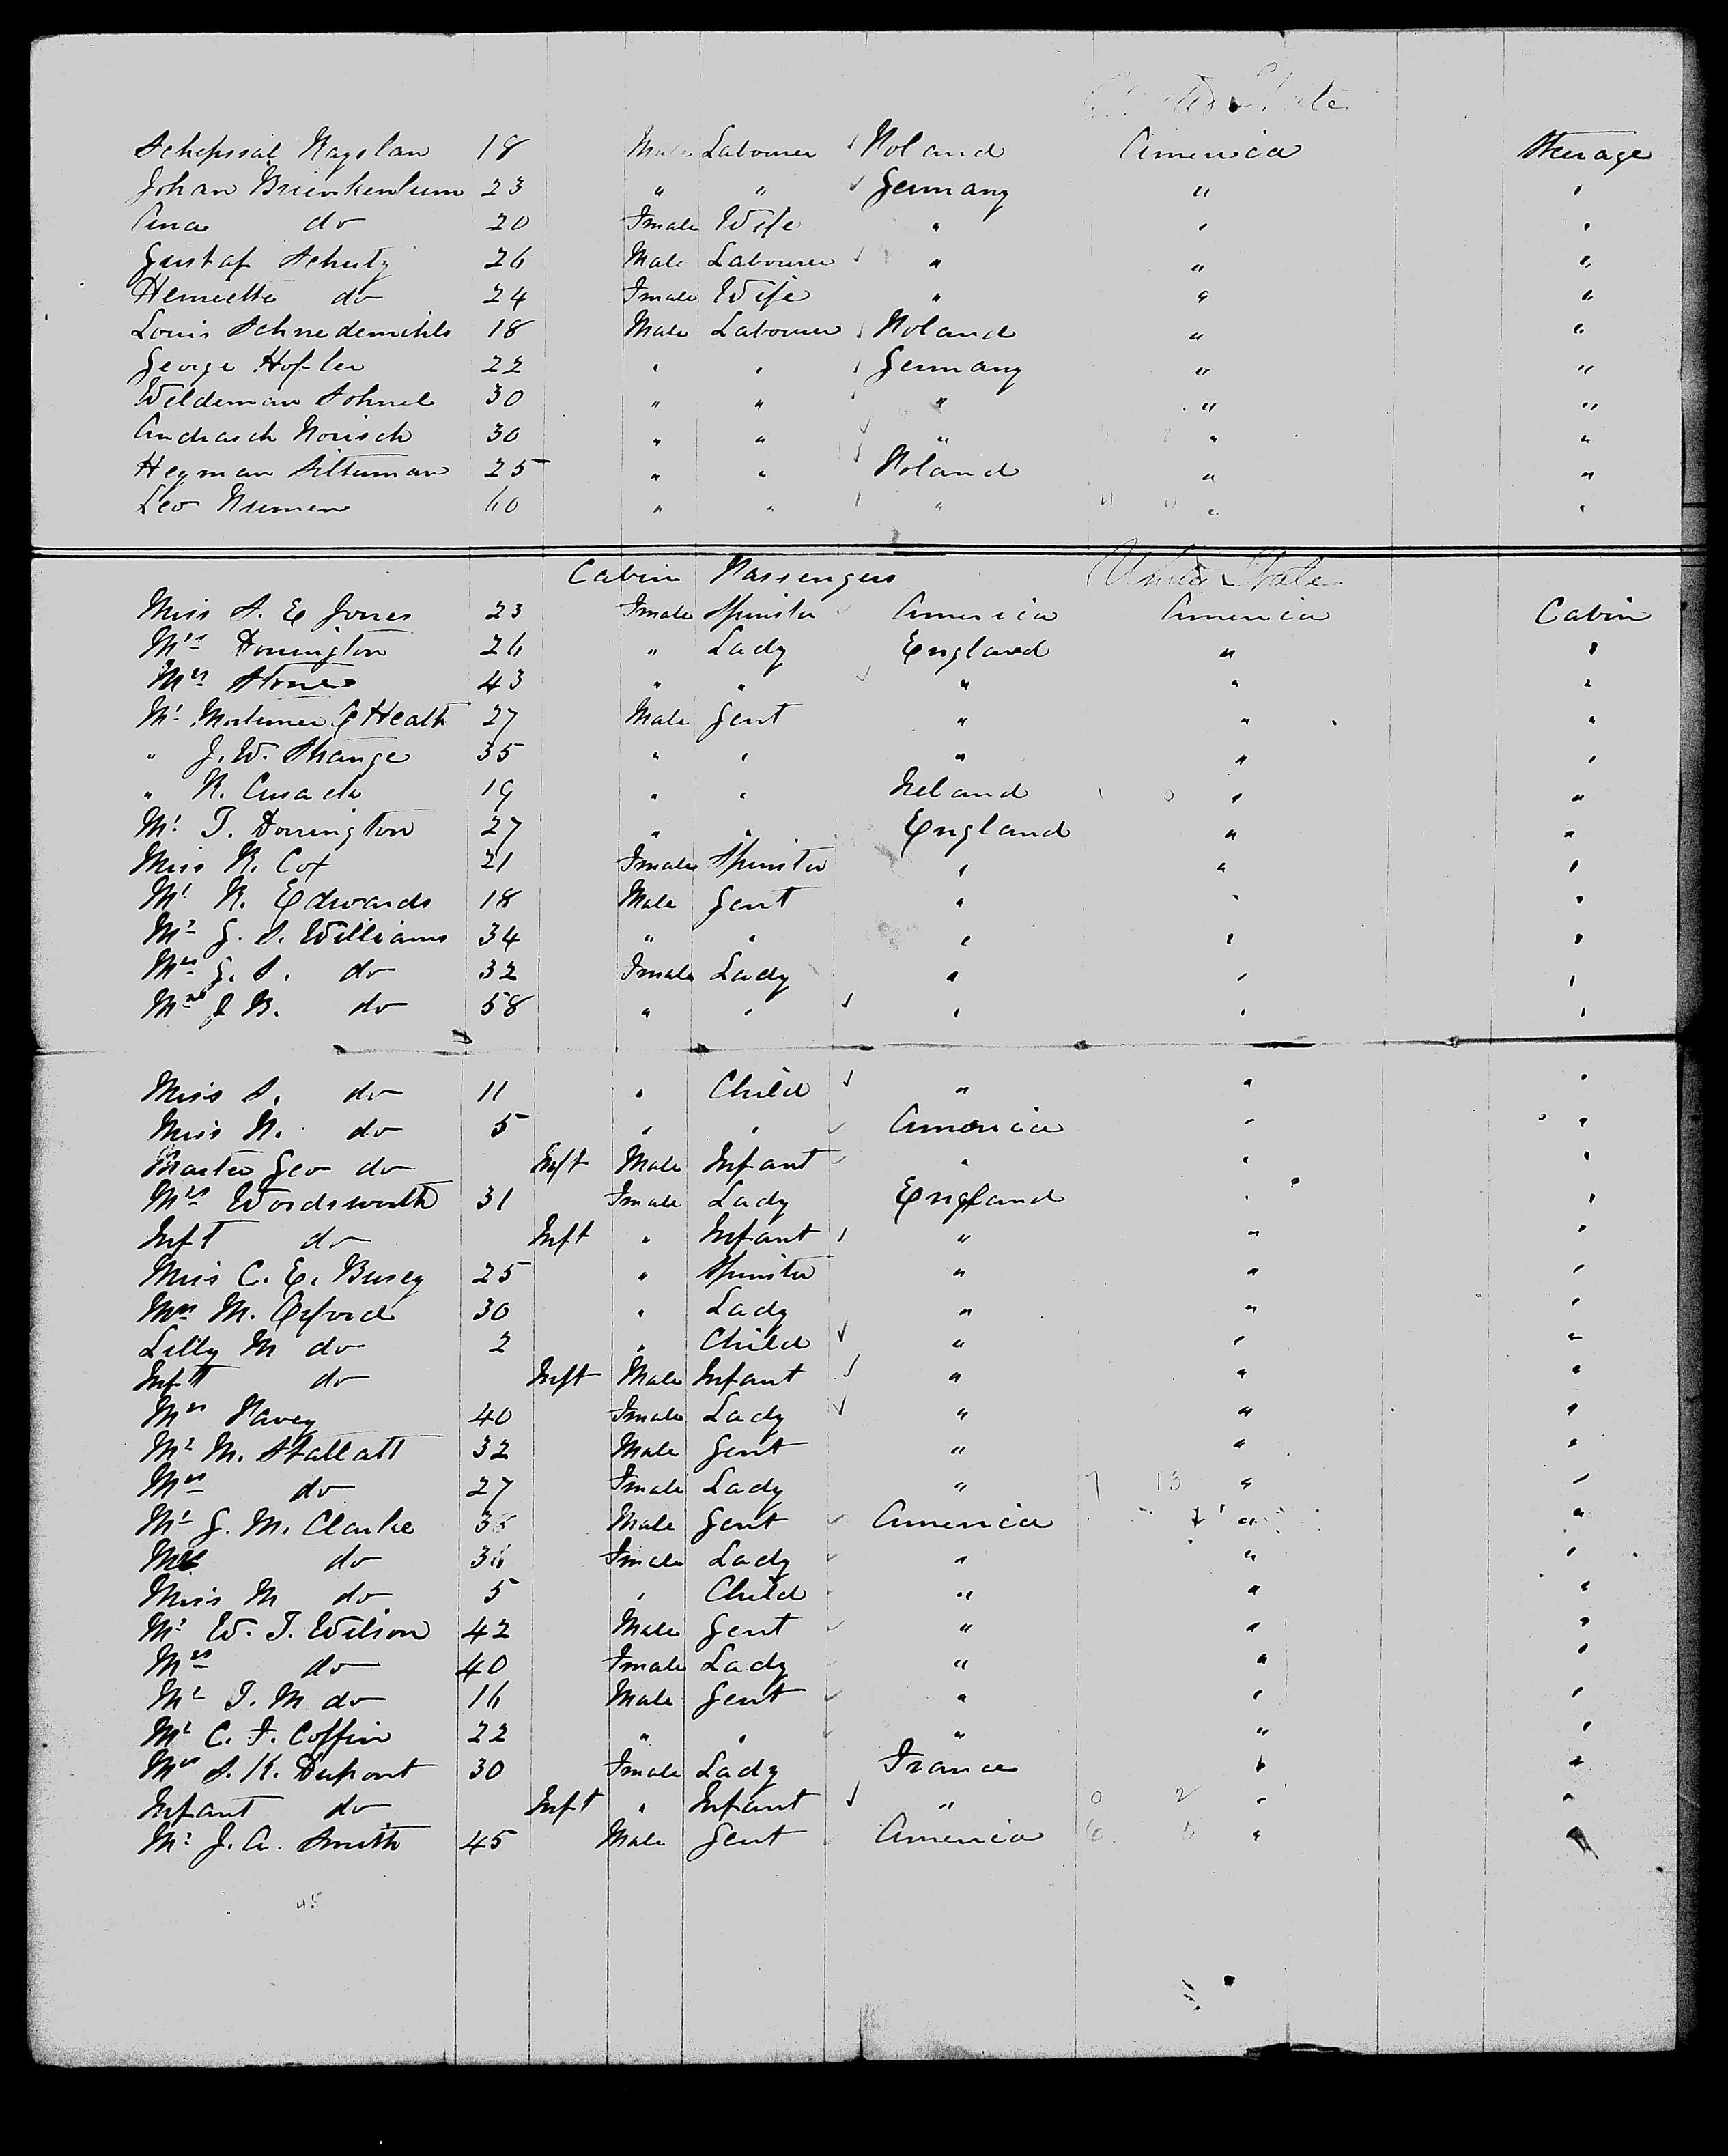 United States
Schepsial Nayslan 18 Male Labourer Poland America Steerage
Johan Brienkenlum 23 " " Germany " "
Ana do 20 Fmale Wife " " "
Gustaf Schutz 26 Male Labourer " " "
Henriette do 24 Fmale Wife " " "
Louis Schnedemihls 18 Male Labourer Poland " "
George Hofler 22 " " Germany " "
Wildeman Sohnel 30 " " " " "
Andrasch Norisch 30 " " " " "
Heyman Silterman 25 " " Poland " "
Leo Numen 60 " " " " "
Cabin Passengers United States
Miss S. E Jones 23 Fmale Spinster America America Cabin
Mrs Donnington 26 " Lady England " "
Mrs Stone 43 " " " " "
Mr Mortimer C Heath 27 Male Gent " " "
" J. W. Strange 35 " " " " "
" R. Cusack 19 " " Ireland " "
Mr T. Donnington 27 " " England " "
Miss R. Cox 21 Fmale Spinster " " "
Mr R. Edwards 18 Male Gent " " "
Mr G. S. Williams 34 " " " " "
Mrs G. S. do 32 Fmale Lady " " "
Mrs J B. do 58 " " " " "
Miss S. do 11 " Child " " "
Miss N. do 5 " " America " "
Master Geo do Inft Male Infant " " "
Mrs Wordsworth 31 Fmale Lady England " "
Inft do Inft " Infant " " "
Miss C. E. Busey 25 " Spinster " " "
Mrs M. Oxford 30 " Lady " " "
Lilly M do 2 " Child " " "
Inft do Inft Male Infant " " "
Mrs Pavey 40 Fmale Lady " " "
Mr M. Stallatt 32 Male Gent " " "
Mrs do 27 Fmale Lady " 7 13 " "
Mr G. M. Clarke 38 Male Gent America " "
Mrs do 36 Fmale Lady " " "
Miss M do 5 " Child " " "
Mr W. T. Wilson 42 Male Gent " " "
Mrs do 40 Fmale Lady " " "
Mr T. M do 16 Male Gent " " "
Mr C. F. Coffin 22 " " " " "
Mrs S. K. Dupont 30 Fmale Lady France " "
Infant do Inft " Infant " 0 2 " "
Mr J. A. Smith 45 Male Gent America 6 5 " "
45